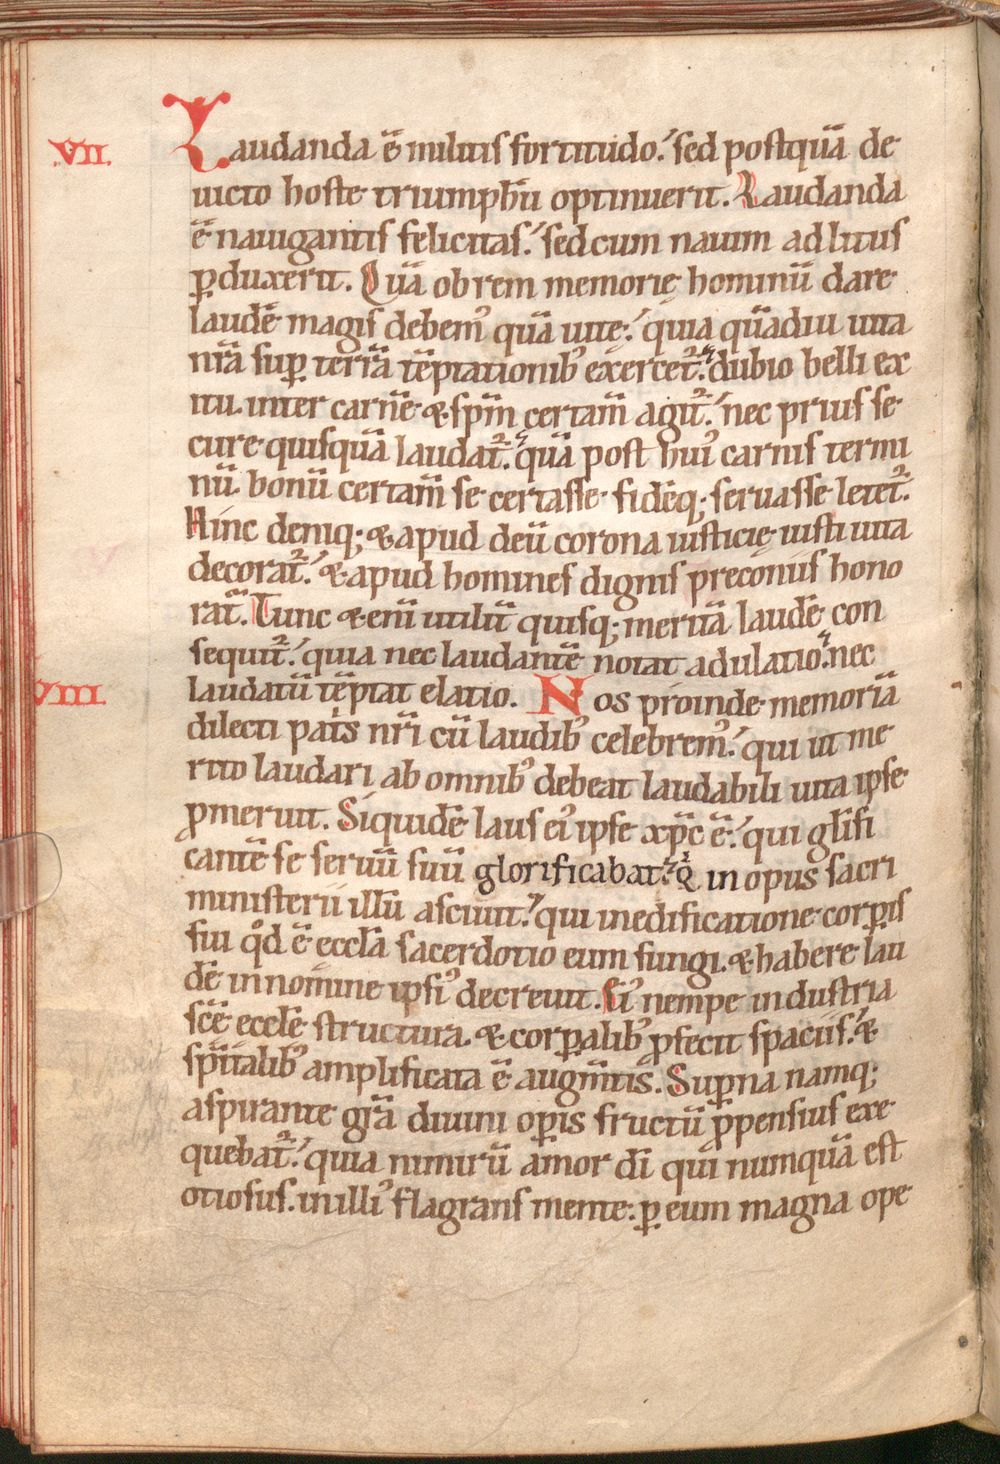 VII.
Laudanda ē militis fortitudo. sed postquā de
uicto hoste triumphū optinuerit. Laudanda
ē nauigantis felicitas. sed cum nauim ad litus
ꝑduxerit. Quā ob rem memorię hominū dare
laudē magis debemꝰ quā uitę. quia quādiu uita
nr̄a suꝑ terrā tēptationibꝰ exercet᷑. dubio belli ex
itu. inter carnē & spm̄ certam̄ agit᷑. nec prius se
cure quisquā laudat᷑. quā post huiꝰ carnis termi
nū. bonū certam̄ se certasse. fidēq; seruasse letet᷑.
Hinc deniq; & apud deū corona iusticię iusti uita
decorat᷑. & apud homines dignis preconiis hono
rat᷑. Tunc & eni̅ utilit̄ quisq; meritā laudē con
sequit᷑. quia nec laudantē notat adulatio. nec
VIII.
laudatū tēptat elatio. Nos proinde memoriā
dilecti pat̄s nr̄i cū laudibꝰ celebremꝰ. qui ut me
rito laudari ab omnibꝰ debeat laudabili uita ipse
ꝓmeruit. Siquidē laus eiꝰ ipse xp̄c ē. qui glīfi
cantē se seruū suū glorificabat. Q in opus sacri
ministerii illū asciuit. qui in edificatione corꝑis
sui qd̄ ē eccl̄a sacerdotio eum fungi. & habere lau
dē in nomine ipsiꝰ decreuit. Eiꝰ nempe industria
scē eccl̄e structura. & corꝑalibꝰ ꝓfecit spaciis. &
sp̄italibꝰ amplificata ē augm̄tis. Suꝑna namq;
aspirante gr̄a diuini oꝑis fructū ꝓpensius exe
quebat᷑. quia nimirū amor dī qui numquā est
otiosus. in illiꝰ flagrans mente. ꝑ eum magna ope